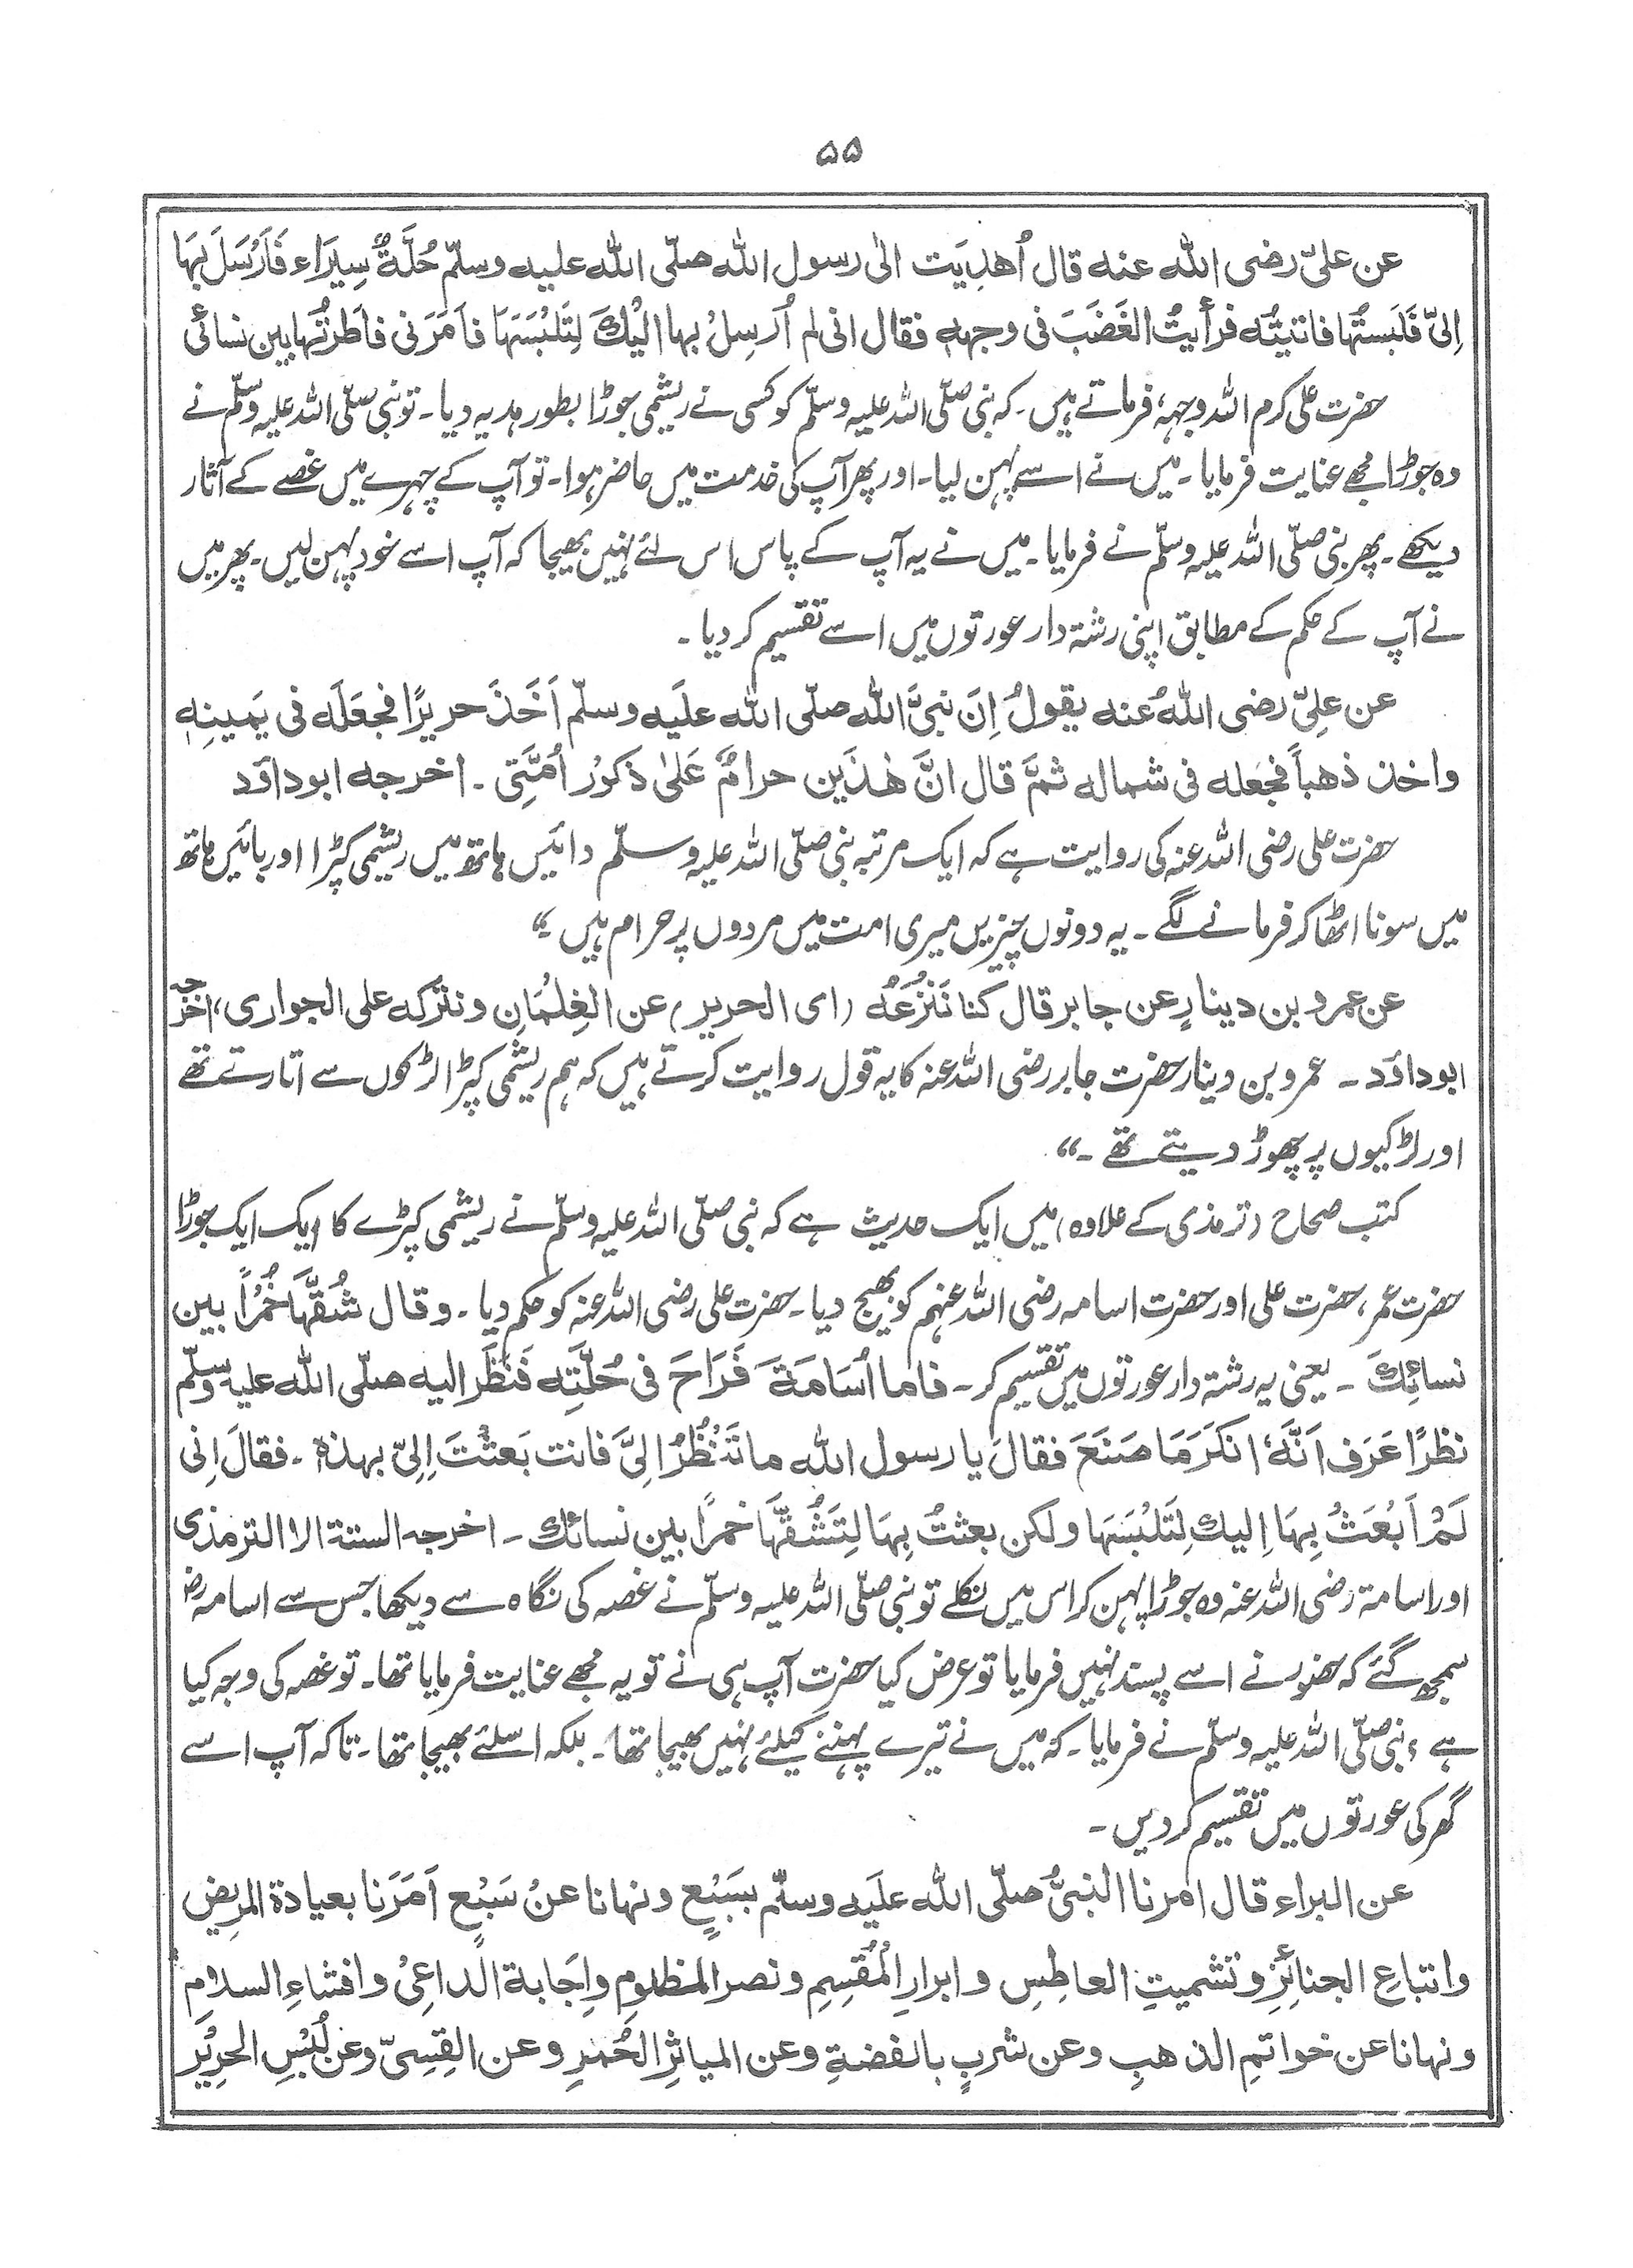 ۵۵
عن علیّ رضی اللہ عنہ قال اُھدِیَت الیٰ رسول اللہ صلّی اللہ علیہ وسلّم حُلَّۃٌ سِیَرَاء فَاَرْسَلَ بِہَا
اِلیّ فَلَبستُہَا فاتیتُہ فرأیتُ الغَضَبَ فی وجھہٖ فقال انی لم اُرسِلْ بھا الیْكَ لِتَلْبَسَہَا فاَمَرَنی فاَطَرْتُھا بین نسائی
حضرت علی کرم اللہ وجہہٗ فرماتے ہیں۔ کہ نبی صلّی اللہ علیہ وسلّم کو کسی نے ریشمی جوڑا بطور ہدیہ دیا۔ تو نبی صلّی اللہ علیہ وسلّم نے
وہ جوڑا مجھے عنایت فرمایا۔ میں نے اسے پہن لیا۔ اور پھر آپ کی خدمت میں حاضر ہوا۔ تو آپ کے چہرے میں غصے کے آثار
دیکھے۔ پھر نبی صلّی اللہ علیہ وسلّم نے فرمایا۔ میں نے یہ آپ کے پاس اس لئے نہیں بھیجا کہ آپ اسے خود پہن لیں۔ پھر میں
نے آپ کے حکم کے مطابق اپنی رشتہ دار عورتوں میں اسے تقسیم کر دیا۔
عن علِیّ رضی اللہُ عنہ یقولُ اِنَّ نبیَّ اللہ صلّی اللہ علَیہ وسلّم اَخَذَ حریرًا فجعَلَہ فی یَمینِہٖ
واخذ ذھباً فجَعلہ فی شمالہ ثمَّ قال انَّ ھٰذَین حرامٌ عَلیٰ ذکوُر اُمَّتِی ۔ اخرجہ ابوداؤد
حضرت علی رضی اللہ عنہ کی روایت ہے کہ ایک مرتبہ نبی صلّی اللہ علیہ وسلّم دائیں ہاتھ میں ریشمی کپڑا اور بائیں ہاتھ
میں سونا اٹھا کر فرمانے لگے۔ یہ دونوں چیزیں میری امت میں مردوں پر حرام ہیں۔“
عن عمرو بن دینارٍ عن جابر قال کنا نَنْزُعُہُ (ای الحریر) عن الغِلْمَانِ ونترکہ علی الجواری، اخرجہ
ابوداؤد ۔ عمرو بن دینار حضرت جابر رضی اللہ عنہ کا یہ قول روایت کرتے ہیں کہ ہم ریشمی کپڑا لڑکوں سے اتارتے تھے
اور لڑکیوں پر چھوڑ دیتے تھے۔“
کتب صحاح (ترمذی کے علاوہ) میں ایک حدیث ہے کہ نبی صلّی اللہ علیہ وسلّم نے ریشمی کپڑے کا ایک ایک جوڑا
حضرت عمر، حضرت علی اور حضرت اسامہ رضی اللہ عنہم کو بھیج دیا۔ حضرت علی رضی اللہ عنہ کو حکم دیا۔ وقال شُقَّہَا خُمُرًا بین
نسائِكَ ۔ یعنی یہ رشتہ دار عورتوں میں تقسیم کر۔ فاما اُسَامَۃَ فَرَاحَ فی حُلَّتِہ فَنَظَرَ الیہ صلّی اللہ علیہ وسلّم
نظرًا عَرَف اَنَّہٗ انکَرَ مَا صَنَعَ فقالَ یا رسول اللہ ما تَنْظُرُ اِلیَّ فانت بَعثْتَ اِلیّ بھذہٖ۔ فقالَ اِنی
لَمْ اَبْعَثْ بِہَا اِلیك لِتَلْبَسَہَا ولکن بعثتُ بِہَا لِتَشُقَّہَا خمرًا بین نسائك ۔ اخرجہ الستۃ الا الترمذی
اور اسامۃ رضی اللہ عنہ وہ جوڑا پہن کر اس میں نکلے تو نبی صلّی اللہ علیہ وسلّم نے غصہ کی نگاہ سے دیکھا جس سے اسامہ رض
سمجھ گئے کہ حضور نے اسے پسند نہیں فرمایا تو عرض کیا حضرت آپ ہی نے تو یہ مجھے عنایت فرمایا تھا۔ تو غصہ کی وجہ کیا
ہے؟ نبی صلّی اللہ علیہ وسلّم نے فرمایا۔ کہ میں نے تیرے پہننے کیلئے نہیں بھیجا تھا۔ بلکہ اسلئے بھیجا تھا۔ تاکہ آپ اسے
گھر کی عورتوں میں تقسیم کردیں۔
عن البراءِ قال امرنا النبیُّ صلّی اللہ علَیہ وسلّم بسَبْعٍ ونھانا عنْ سَبْعٍ اَمَرَنا بعیادۃ المریض
واتباعِ الجنائِزِ وتشمیتِ العاطِسِ وابرارِ المُقْسِمِ ونصرِ المظلومِ وِاجَابۃ الداعِیْ وافشاءِ السلامِ
ونہانا عن خواتمِ الذھبِ وعن شربٍ بالفضۃِ وعن المیاثِرِ الحُمرِ وعن القِسِیّ وعن لُبْسِ الحرِیْرِ